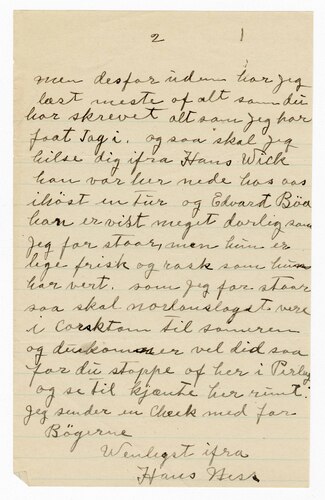 2
men desforuden har jeg
læst meste of alt som du
har skrevet alt som jeg har
faat Tag i. og saa skal jeg
hilse dig ifra Hans Wick
han var her nede hos oss
ihöst en Tur og Edvard Böe
han er vist meget darlig som
jeg for staar, men hun er
lige frisk og rask som hun
har vert. som jeg for staar
saa skal norlanslaget vere
i Corsktom til somren
og du kommer vel did saa
far du stoppe of her i Perley
og se til kjente her runt.
jeg sender en Check med for
Bögerne
Wenligst ifra
Hans